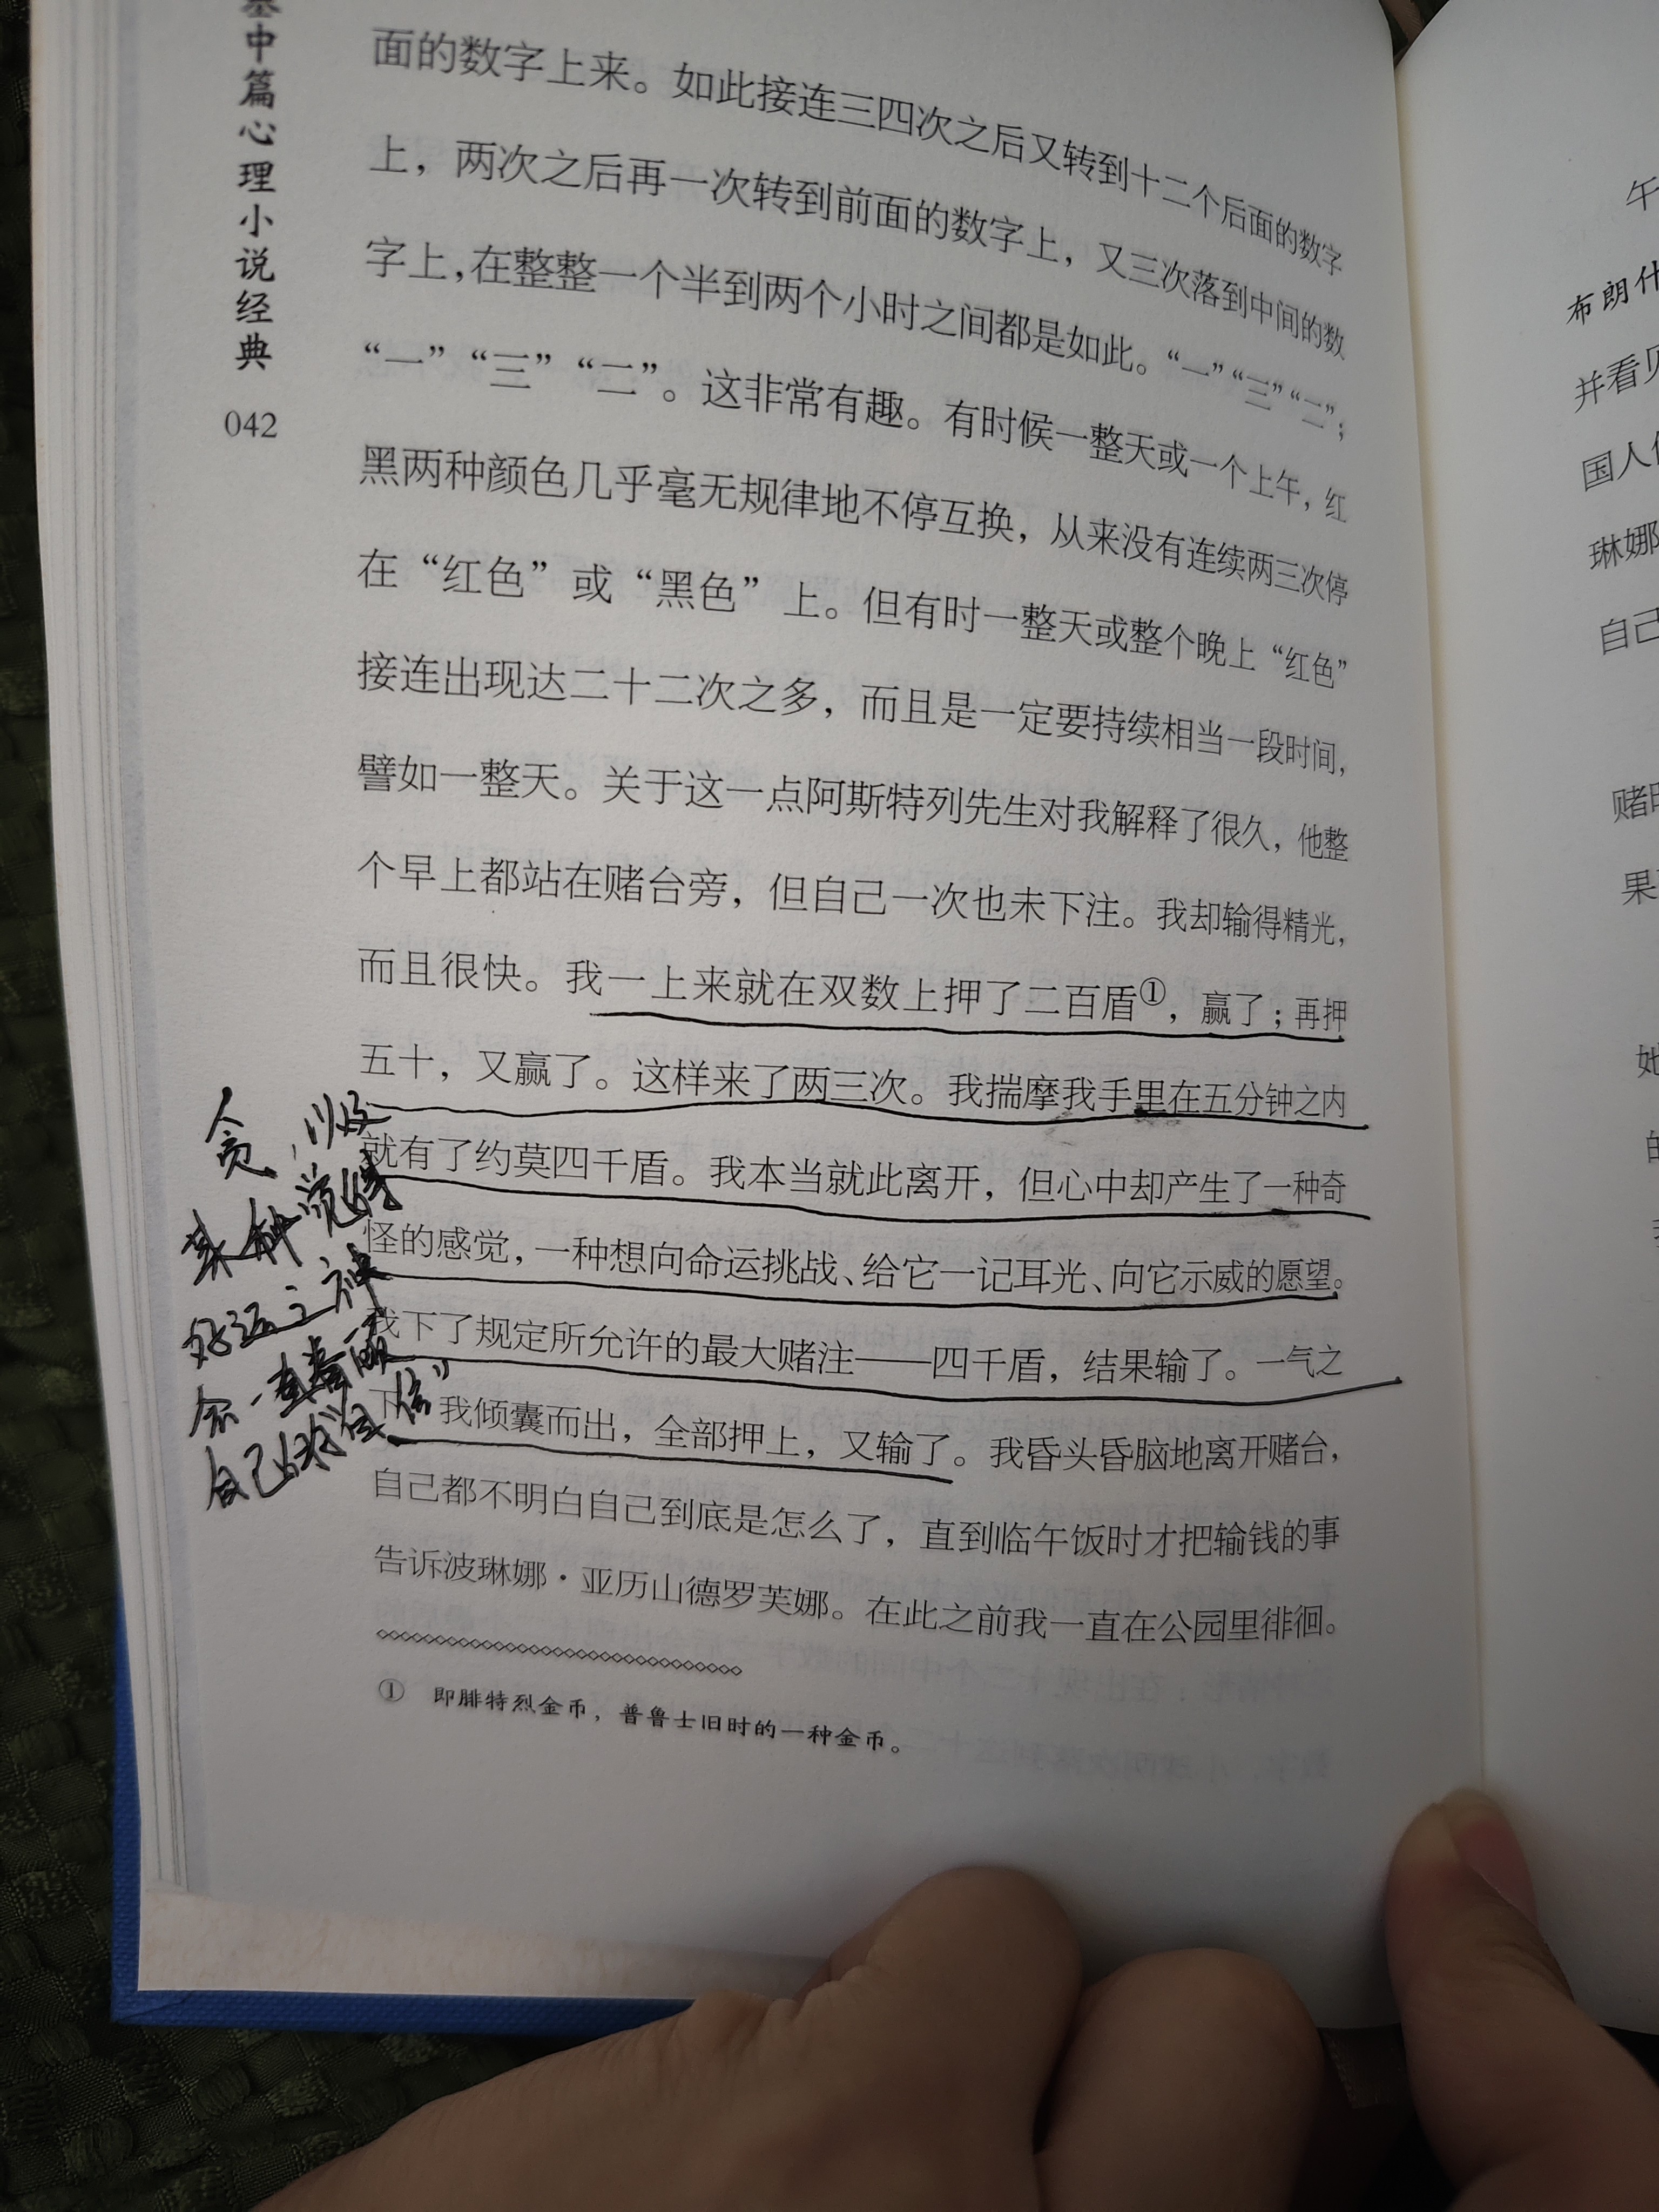 基中篇心理小说经典
042
面的数字上来。如此接连三四次之后又转到十二个后面的数字
上，两次之后再一次转到前面的数字上，又三次落到中间的数
字上,在整整一个半到两个小时之间都是如此。“一”“三”“二”;
“一”“三”“二”。这非常有趣。有时候一整天或一个上午，红
黑两种颜色几乎毫无规律地不停互换，从来没有连续两三次停
在“红色”或“黑色”上。但有时一整天或整个晚上“红色”
接连出现达二十二次之多，而且是一定要持续相当一段时间，
譬如一整天。关于这一点阿斯特列先生对我解释了很久，他整
个早上都站在赌台旁，但自己一次也未下注。我却输得精光，
而且很快。我一上来就在双数上押了二百盾①，赢了；再押
五十，又赢了。这样来了两三次。我揣摩我手里在五分钟之内
就有了约莫四千盾。我本当就此离开，但心中却产生了一种奇
怪的感觉，一种想向命运挑战、给它一记耳光、向它示威的愿望。
我下了规定所允许的最大赌注——四千盾，结果输了。一气之
下，我倾囊而出，全部押上，又输了。我昏头昏脑地离开赌台，
自己都不明白自己到底是怎么了，直到临午饭时才把输钱的事
告诉波琳娜·亚历山德罗芙娜。在此之前我一直在公园里徘徊。
① 即腓特烈金币，普鲁士旧时的一种金币。
贪，以及
某种觉得
好运之神
会一直眷顾
自己的“自信”
午
布朗什
并看见
国人
琳娜
自己
赌
果
她
的